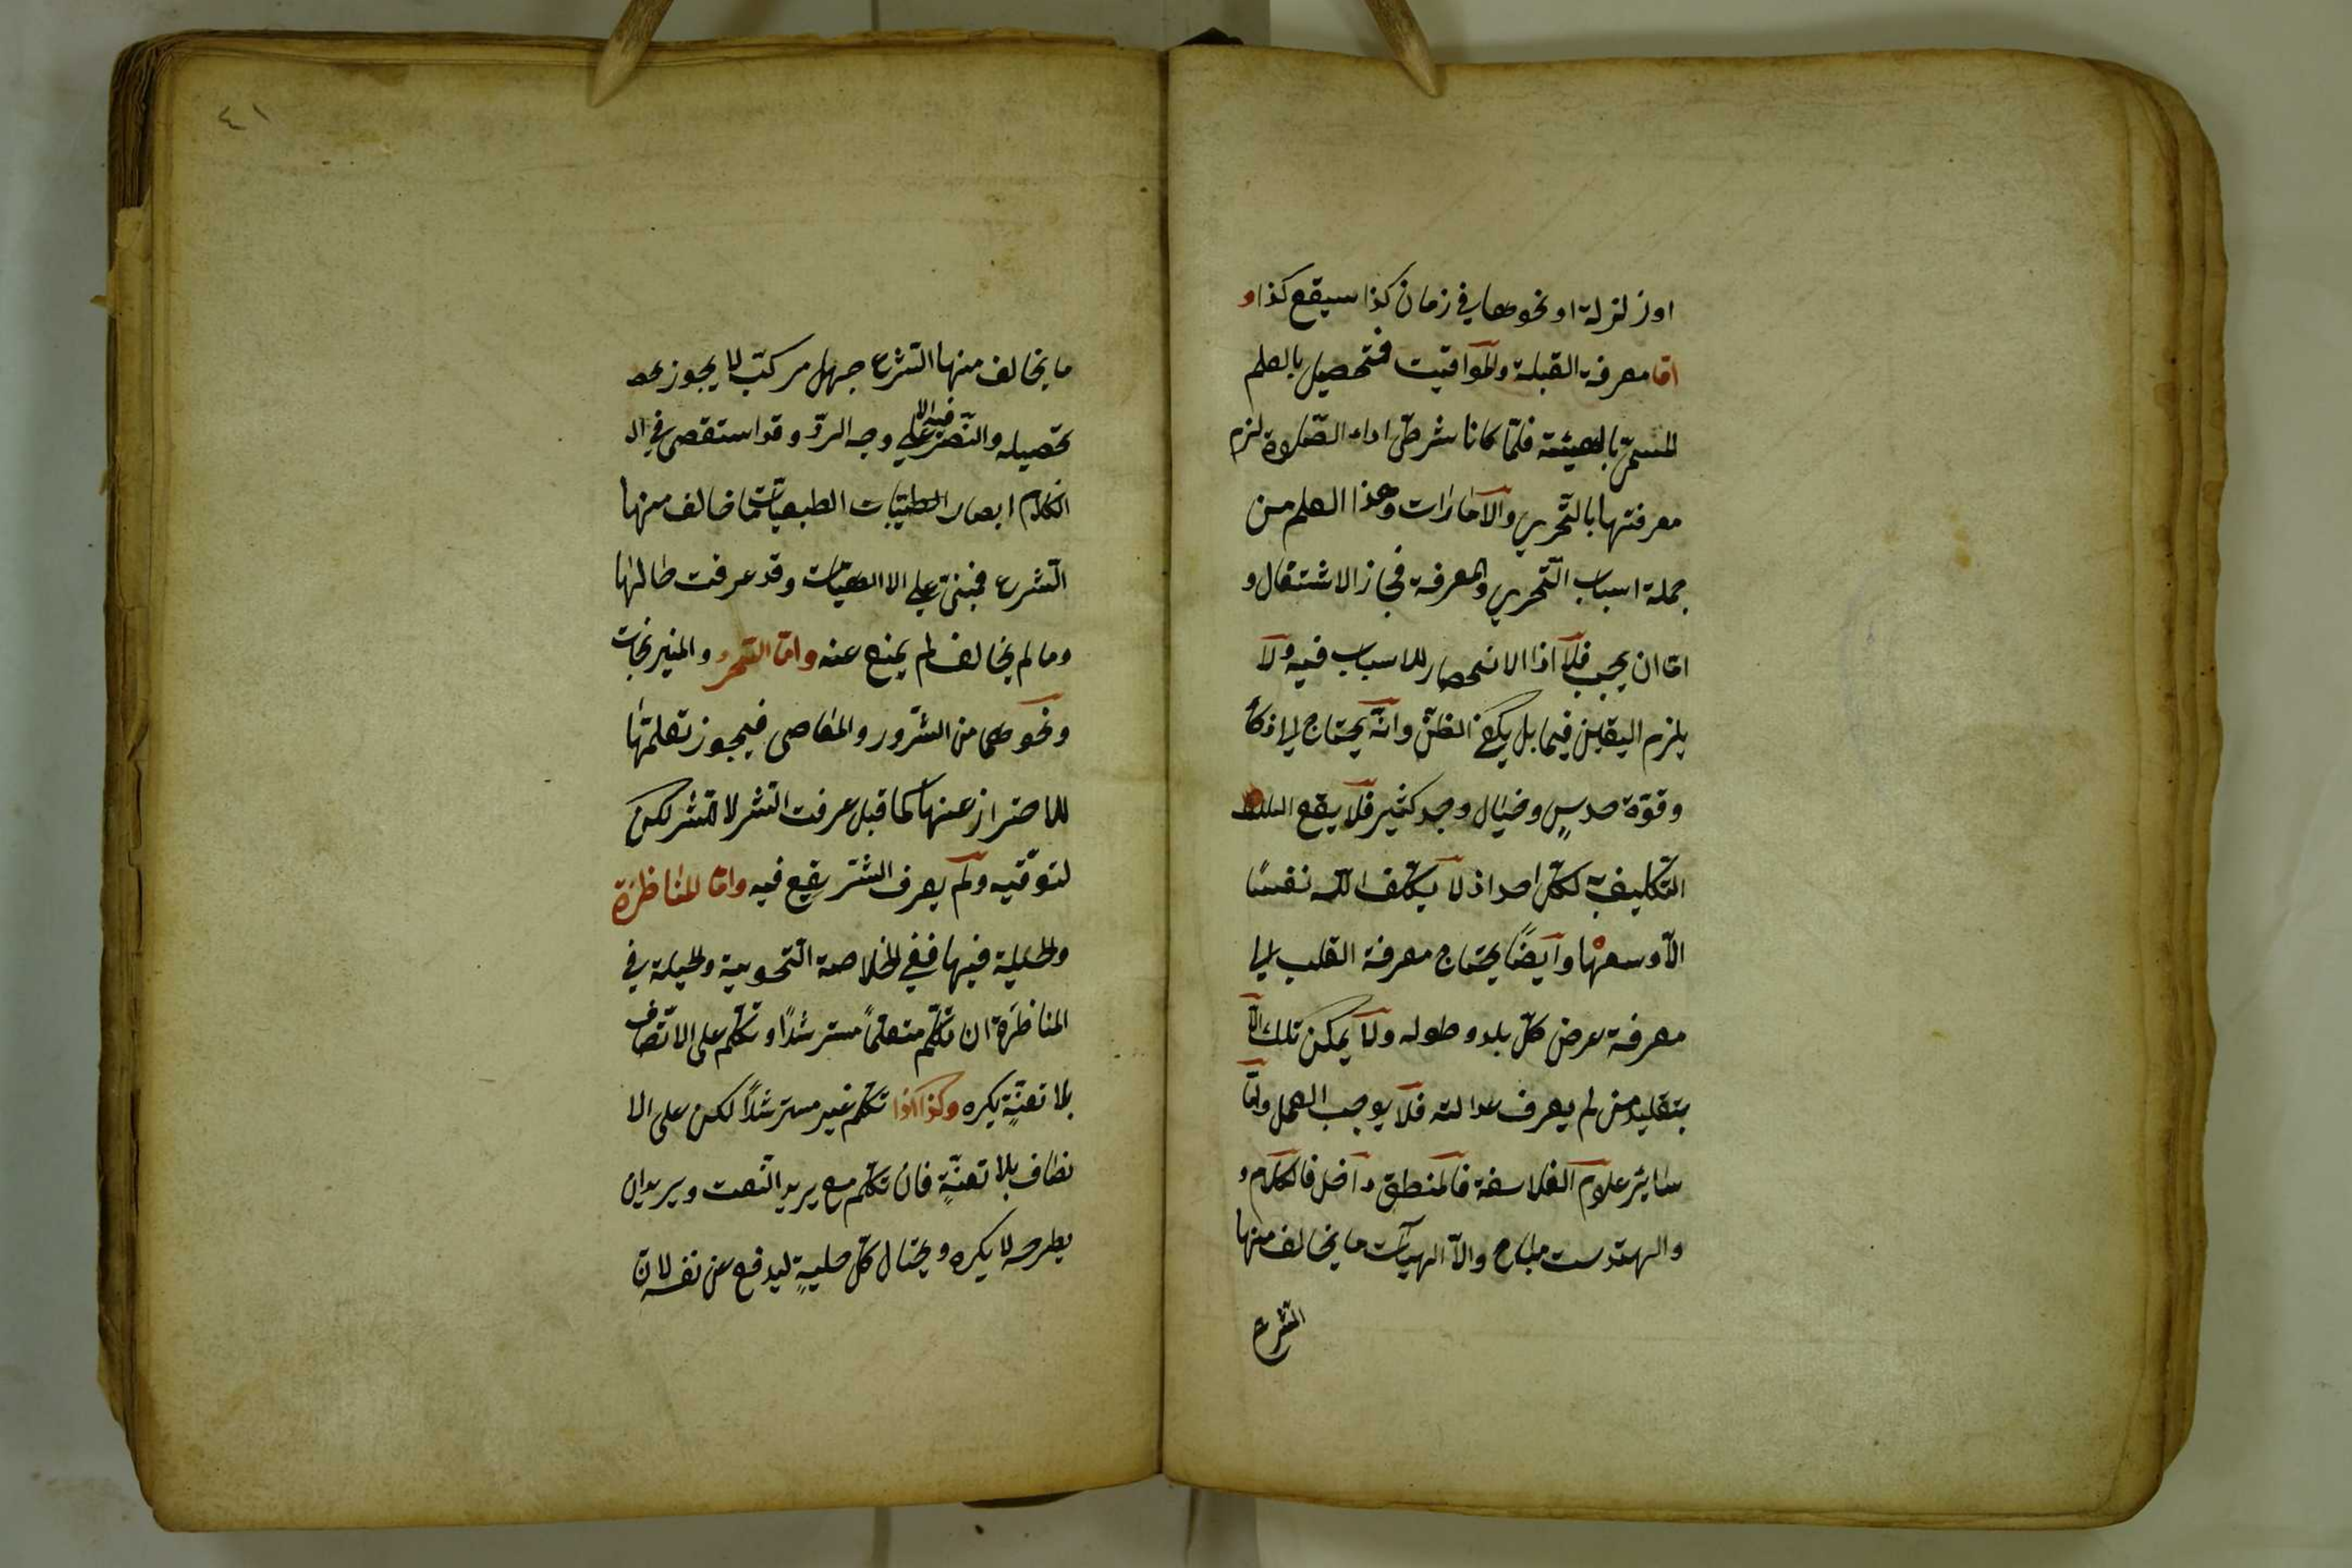 او زلزلة او نحوها في زمان كذا سيقع كذا و
اما معرفة القبلة والمواقيت فتحصيل بالعلم
المسمى بالهيئة فلما كانا شرطى اداء الصلوة لزم
معرفتها بالتحري والامارات وهذا العلم من
جملة اسباب التحري والمعرفة فجاز الاشتغال و
اما ان يجب فلا اذا الانحصار للاسباب فيه ولا
يلزم اليقين فيها بل يكفي الظن وانه يحتاج الى ذكاء
وقوة حدس وخيال وجد كثير فلا يقع
التكليف لكل احد اذ لا يكلف الله نفسا
الا وسعها وايضا يحتاج معرفة القلب الى
معرفة عرض كل بلد وطوله ولا يمكن تلك الا
بتقليد من لم يعرف عدالته فلا يوجب العمل واما
سائر علوم الفلاسفة فالمنطق داخل فالكلام و
والهندست مباح والا الهيات ما يخالف منها
الشرع
٤١
ما يخالف منها الشرع جهل مركب لا يجوز
تحصيله والنظر فيه الا على وجه الرد وقد استقصى في ال
الكلام الطبعيات ما خالف منها
الشرع فمبنى على الالهيات وقد عرفت حالها
وما لم يخالف لم يمنع عنه واما السحر والنيرنجات
ونحوهما من الشرور والمعاصى فيجوز تعلمها
للاحتراز عنها كما قيل عرفت الشر لا للشر لكن
لتوقيه ولم يعرف الشر يقع فيه واما المناظرة
والحيلة فيها ففي الخلاصة التحويية والحيلة في
المناظرة ان تكلم متعلما مسترشدا او تكلم على الانصاف
بلا تعنت يكره وكذا اذا تكلم غير مسترشدا لكن على الا
نصاف بلا تعنت فان تكلم مع يريد التعنت ويريد ان
يطرحه لا يكره ويحتال كل حيلة ليدفع عن نفسه لان